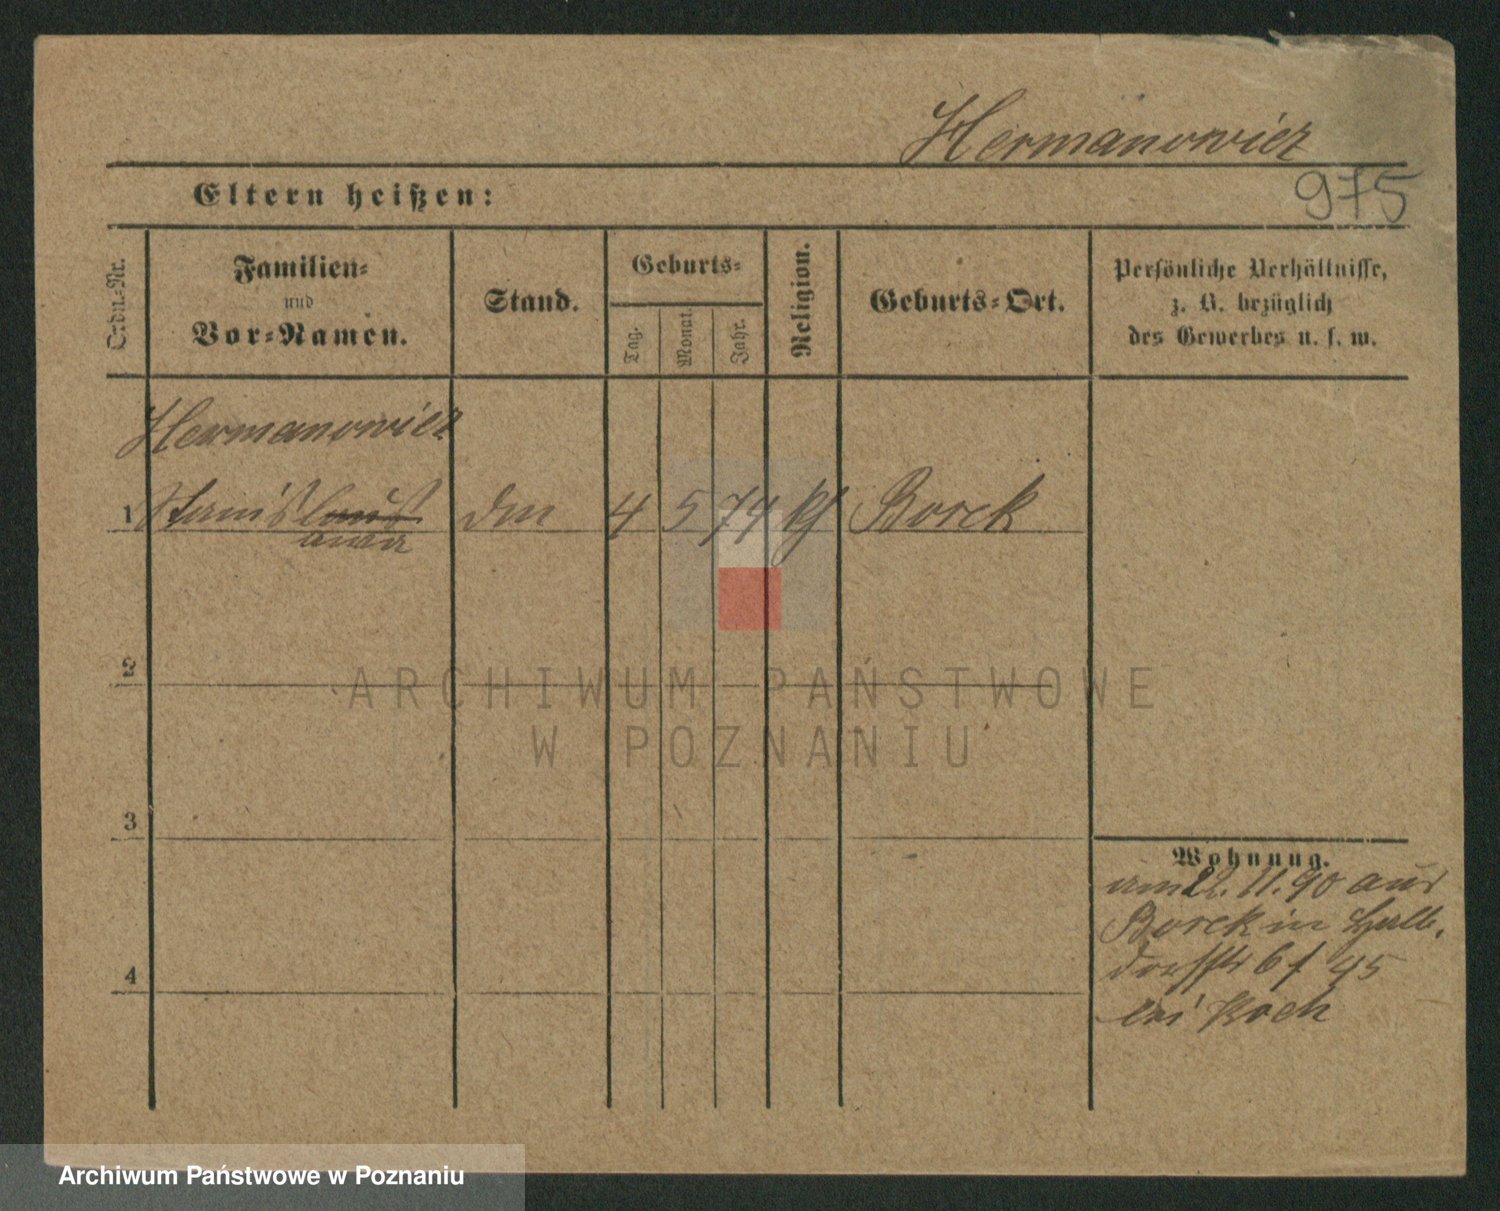 Hermanowicz
975
Eltern heißen:
Ordn.-Nr.
Familien-
und
Vor-Namen.
Stand.
Geburts-
Tag.
Monat.
Jahr.
Religion.
Geburts-Ort.
Persönliche Verhältnisse,
z. B. bezüglich
des Gewerbes u. s. w.
Hermanowicz
1 Stanislaus 4 5 74 Borek
2
3
4
Wohnung.
am 22. 11. 90 aus
Borek in Halb-
dorfstr 6
bei Koch
ARCHIWUM PAŃSTWOWE
W POZNANIU
Archiwum Państwowe w Poznaniu